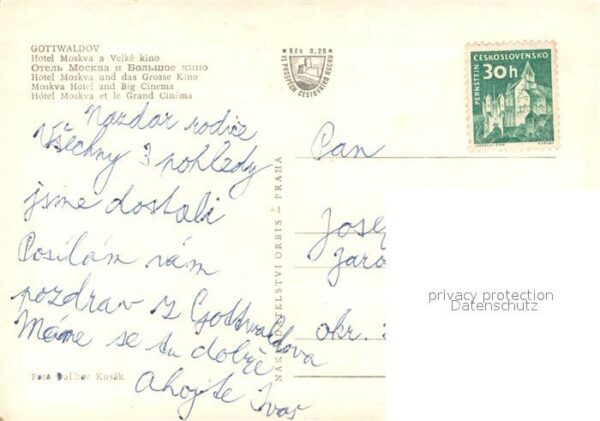 GOTTWALDOV
Hotel Moskva a Velké kino
Отель Москва и Большое кино
Hotel Moskva und das Grosse Kino
Moskva Hotel and Big Cinema
Hôtel Moskva et le Grand Cinéma
Nazdar rodiče
Všechny 3 pohledy
jsme dostali
Posílám vám
pozdrav z Gottvaldova
Máme se tu dobře
Ahojte Ivos
Foto Dalibor Kusák
NAKLADATELSTVÍ ORBIS - PRAHA
Kčs 0,20
VE PROSPĚCH CESTOVNÍHO RUCHU
ČESKOSLOVENSKO
30h
PERNŠTEJN
Pan
Josef
Jaro
okr.
privacy protection
Datenschutz